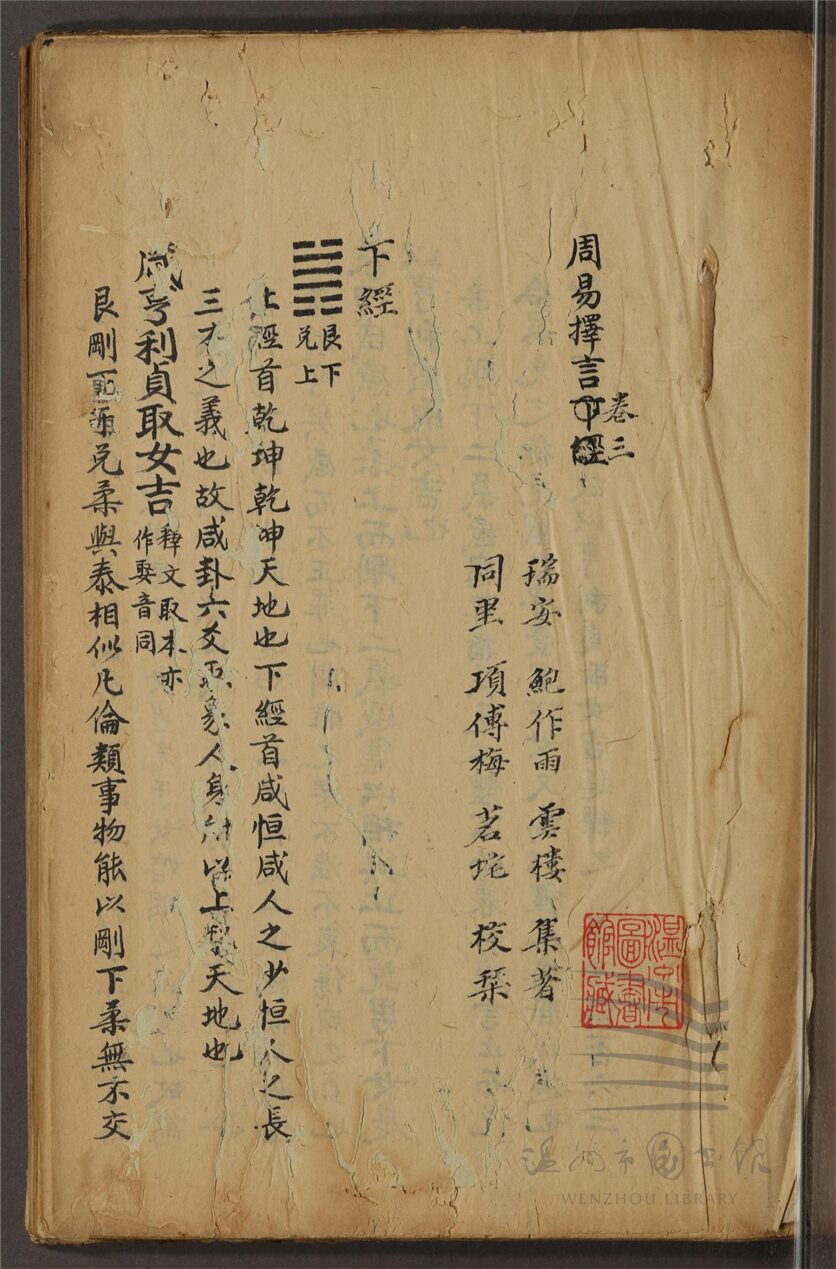 周易擇言下經
卷三
瑞安 鮑作雨 雲樓 集著
同里 項傅梅 茗垞 校栞
下經
艮下
兌上
上經首乾坤乾坤天地也下經首咸恒咸人之少恒人之長
三才之義也故咸卦六爻取象人身所以上擬天地也
咸亨利貞取女吉
釋文取本亦
作娶音同
艮剛兌柔與泰相似凡倫類事物能以剛下柔無不交
溫州市圖書館藏
温州市图书馆
WENZHOU LIBRARY